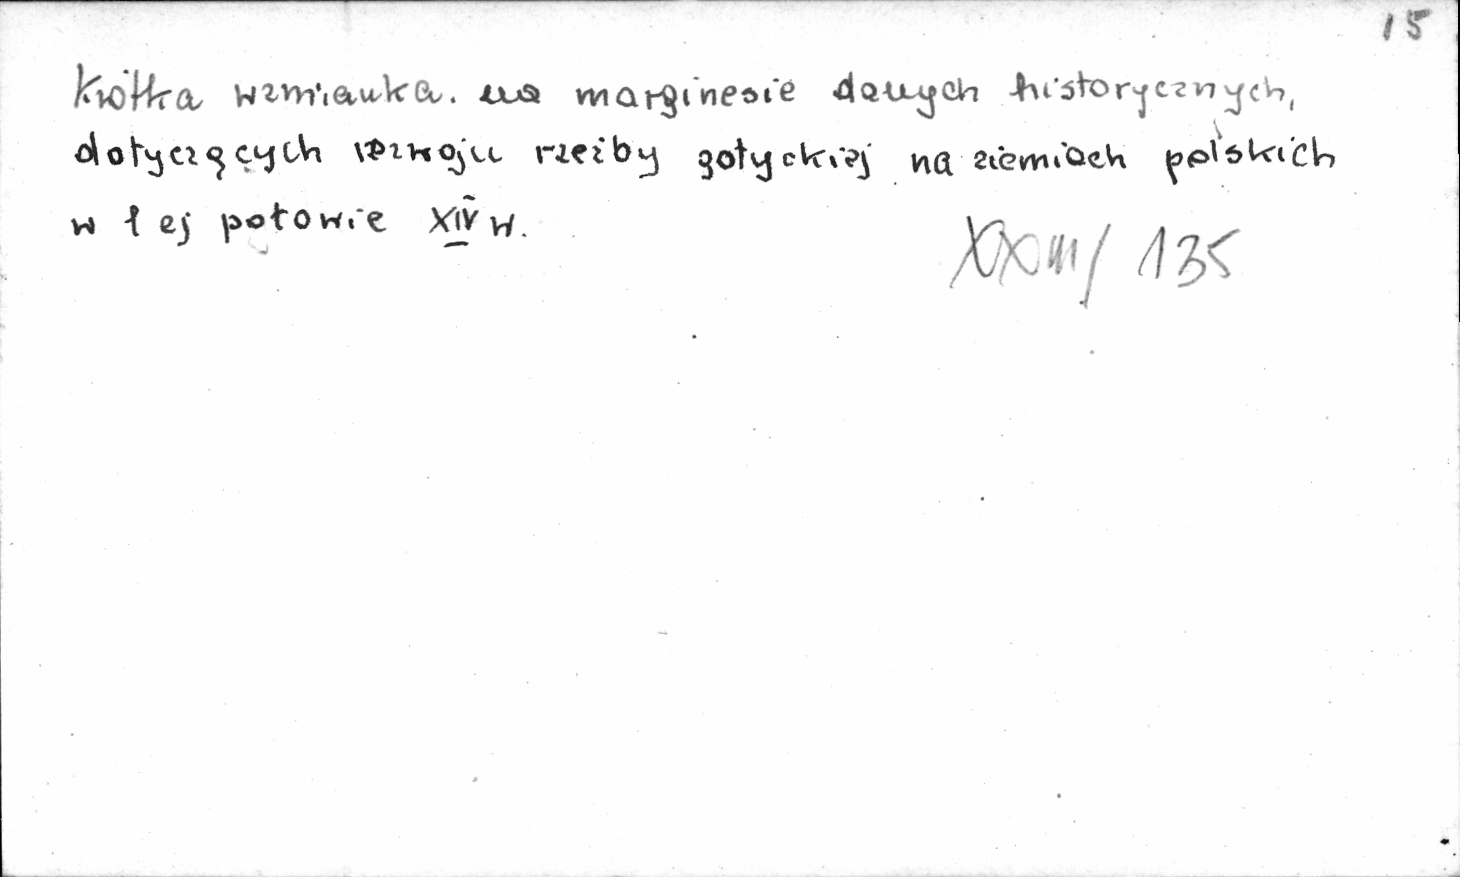 15
Krótka wzmianka. na marginesie danych historycznych,
dotyczących rozwoju rzeźby gotyckiej na ziemiach polskich
w 1 ej połowie XIV w.
XXIII/ 135